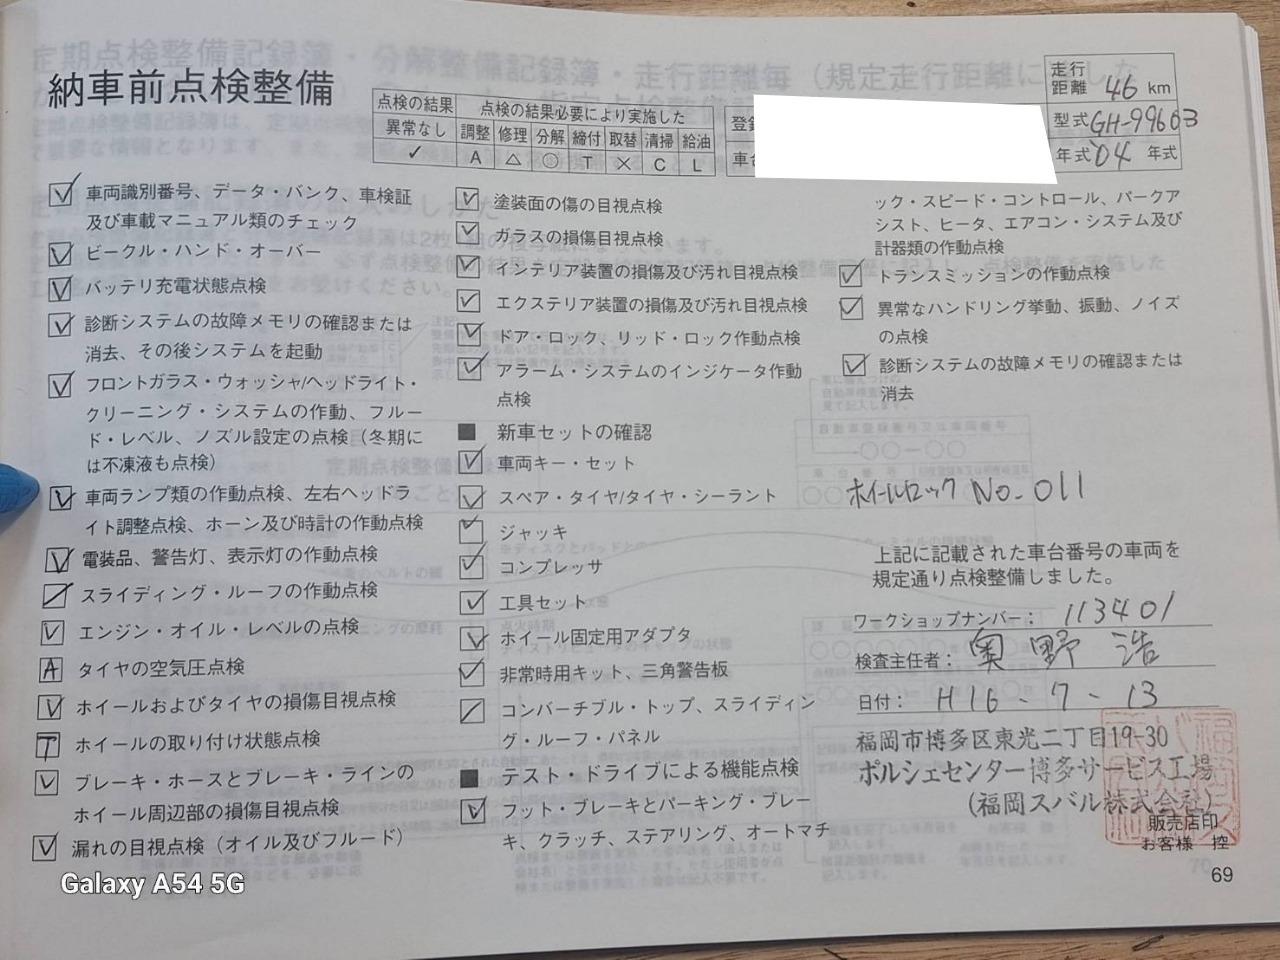 納車前点検整備
点検の結果 点検の結果必要により実施した
異常なし 調整 修理 分解 締付 取替 清掃 給油
✓ A △ ○ T × C L
登録
車台
走行距離 46 km
型式 GH-99603
年式 04 年式
車両識別番号、データ・バンク、車検証
及び車載マニュアル類のチェック
ビークル・ハンド・オーバー
バッテリ充電状態点検
診断システムの故障メモリの確認または
消去、その後システムを起動
フロントガラス・ウォッシャ/ヘッドライト・
クリーニング・システムの作動、フルー
ド・レベル、ノズル設定の点検（冬期に
は不凍液も点検）
車両ランプ類の作動点検、左右ヘッドラ
イト調整点検、ホーン及び時計の作動点検
電装品、警告灯、表示灯の作動点検
スライディング・ルーフの作動点検
エンジン・オイル・レベルの点検
A タイヤの空気圧点検
ホイールおよびタイヤの損傷目視点検
T ホイールの取り付け状態点検
ブレーキ・ホースとブレーキ・ラインの
ホイール周辺部の損傷目視点検
漏れの目視点検（オイル及びフルード）
塗装面の傷の目視点検
ガラスの損傷目視点検
インテリア装置の損傷及び汚れ目視点検
エクステリア装置の損傷及び汚れ目視点検
ドア・ロック、リッド・ロック作動点検
アラーム・システムのインジケータ作動
点検
■ 新車セットの確認
車両キー・セット
スペア・タイヤ/タイヤ・シーラント
ジャッキ
コンプレッサ
工具セット
ホイール固定用アダプタ
非常時用キット、三角警告板
コンバーチブル・トップ、スライディン
グ・ルーフ・パネル
■ テスト・ドライブによる機能点検
フット・ブレーキとパーキング・ブレー
キ、クラッチ、ステアリング、オートマチ
ック・スピード・コントロール、パークア
シスト、ヒータ、エアコン・システム及び
計器類の作動点検
トランスミッションの作動点検
異常なハンドリング挙動、振動、ノイズ
の点検
診断システムの故障メモリの確認または
消去
ホイールロック No.011
上記に記載された車台番号の車両を
規定通り点検整備しました。
ワークショップナンバー: 113401
検査主任者: 奥野 浩
日付: H16-7-13
福岡市博多区東光二丁目19-30
ポルシェセンター博多サービス工場
(福岡スバル株式会社)
販売店印
お客様 控
69
Galaxy A54 5G